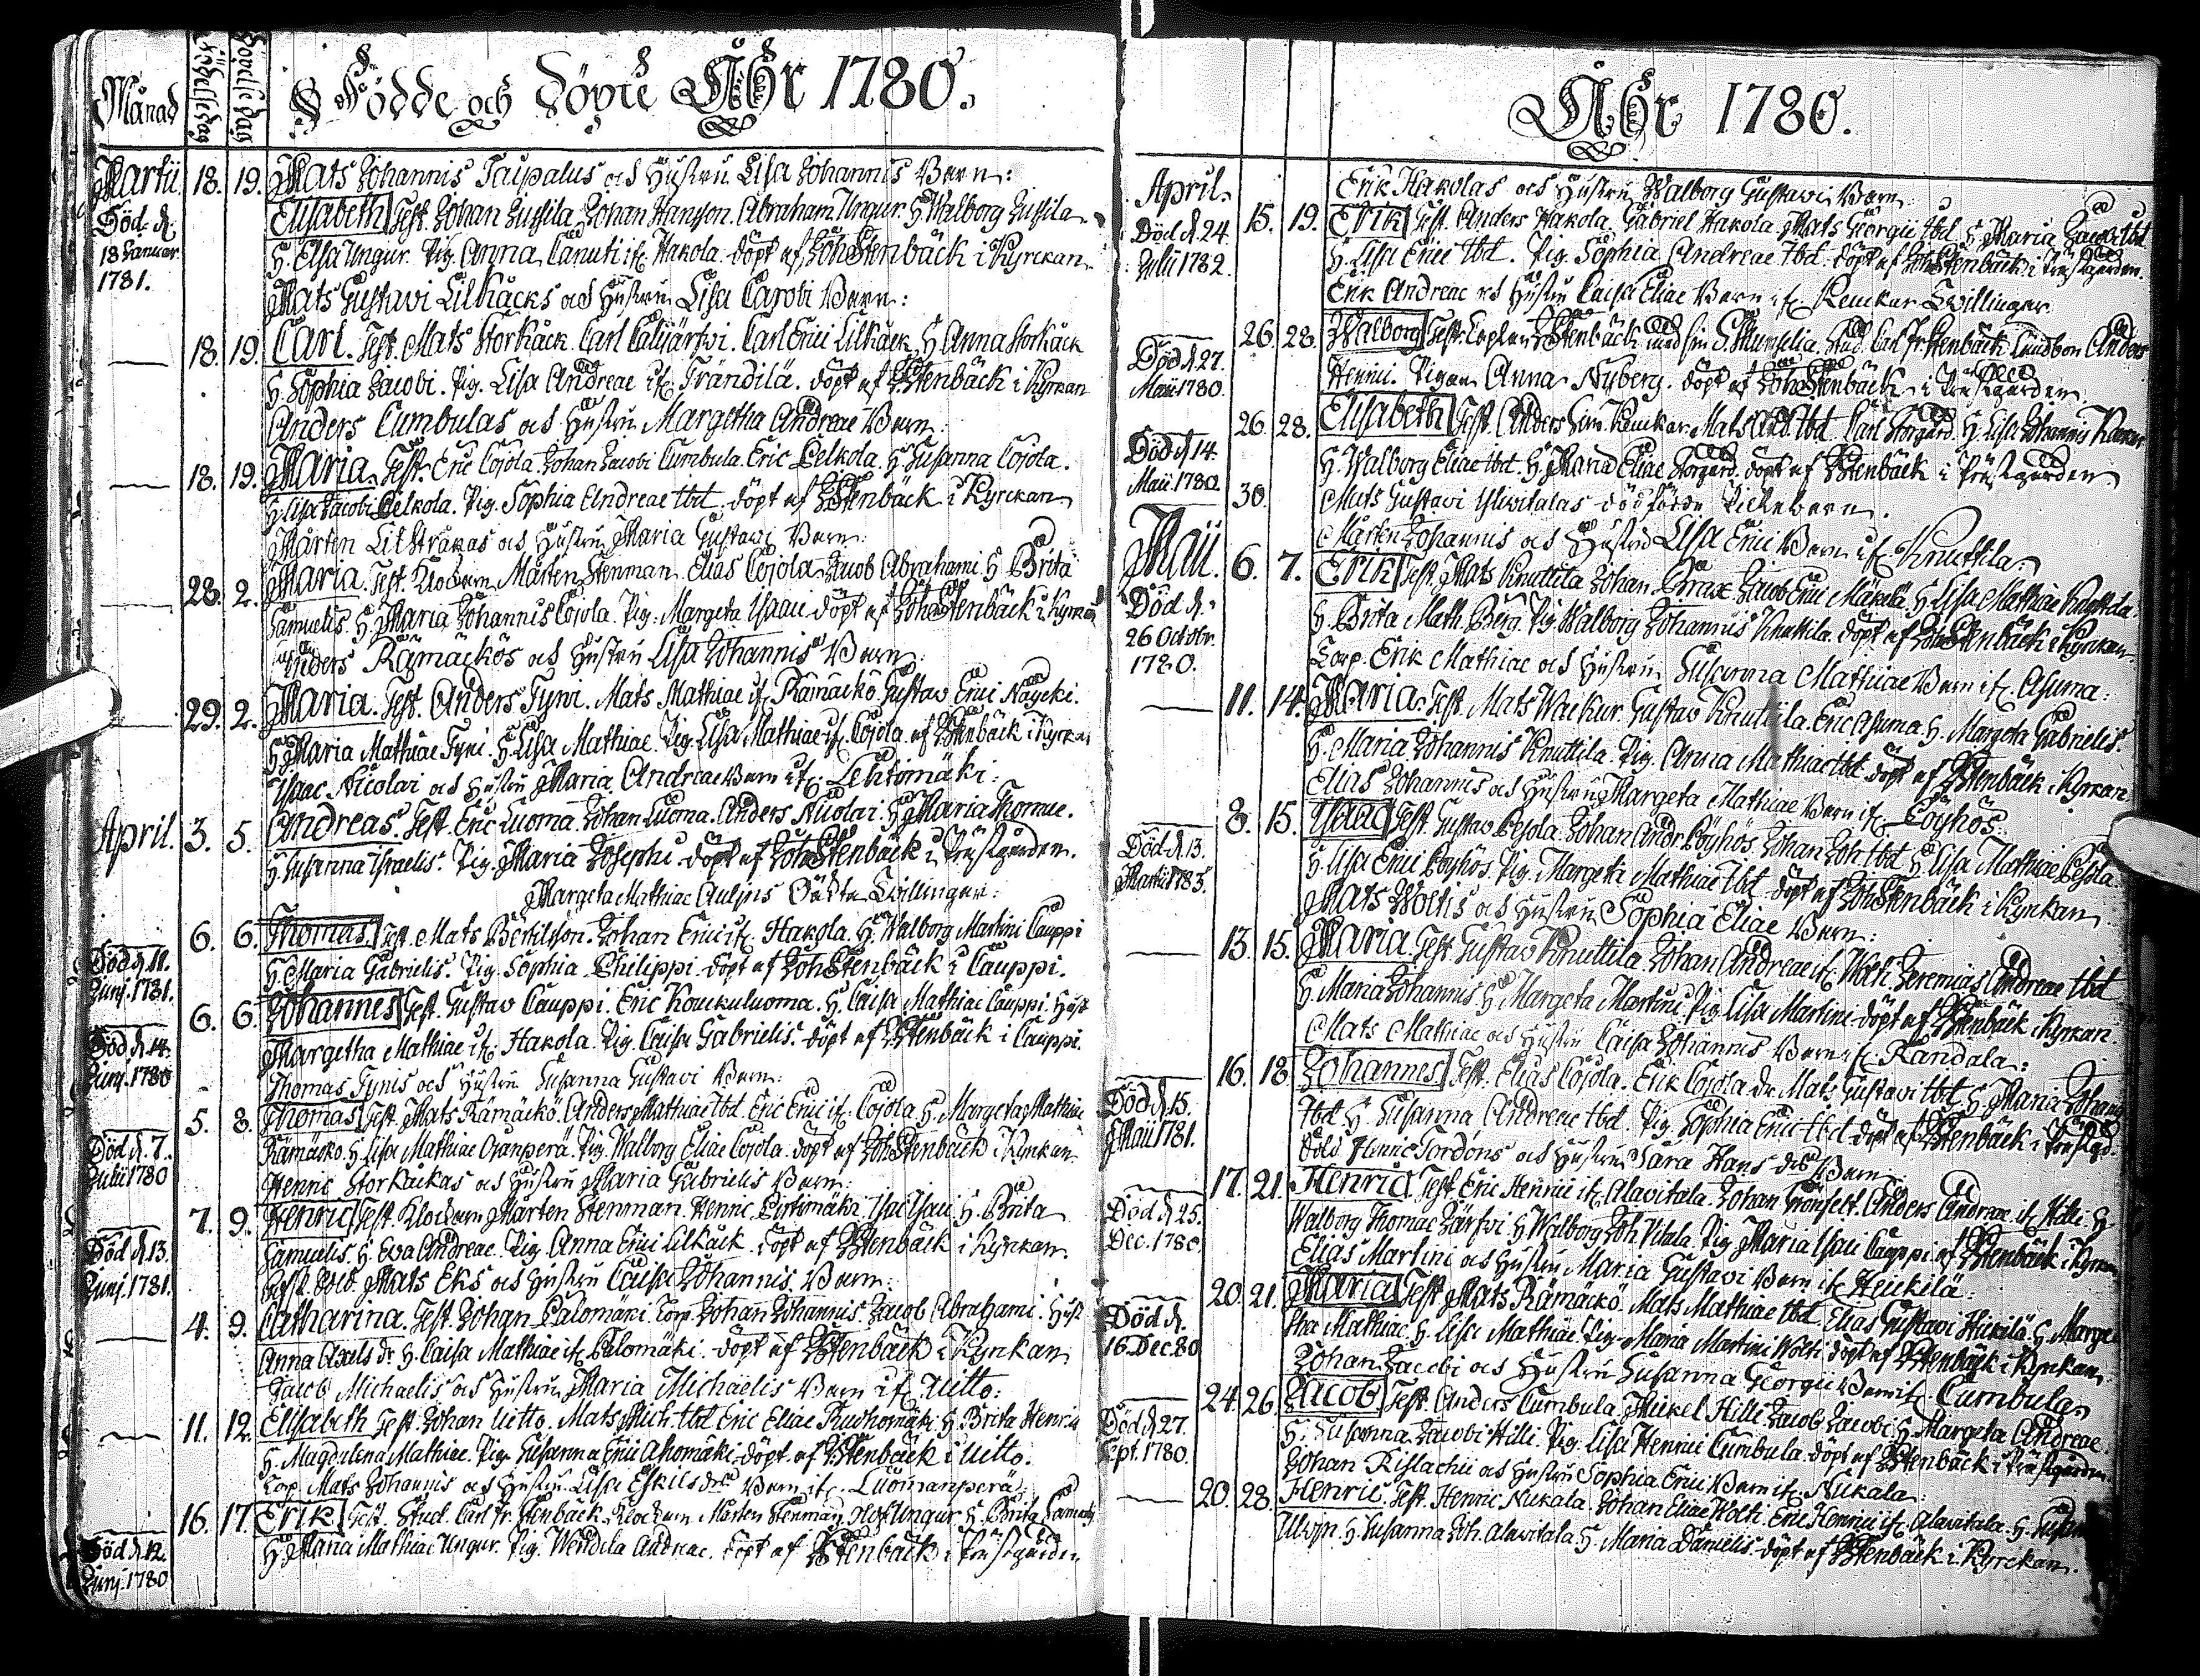 Månad Födelsedag Döpelse dag Födde och Döpte Åhr 1780.
Martii 18. 19. Mats Johannis Taipalus och Hustru Lisa Johannis Barn:
Död d. Elisabeth Test. Johan Jussila. Johan Hansson. Abraham Ungur. H. Walborg Jussila.
18 Januar. 1781. H. Lisa Ungur. Pig. Anna Canuti if. Hakola. döpt af Joh Stenbäck i Kyrckan.
Mats Gustavi Lilkåcks och Hustru Lisa Jacobi Barn:
18. 19. Carl. Test. Mats Storkåck. Carl Calljärfvi. Carl Erici Lilkåck. H. Anna Storkåck
H. Sophia Jacobi. Pig. Lisa Andreae if. Trändilä. döpt af JStenbäck i Kyrkan
Anders Cumbulas och Hustru Margetha Andreae Barn:
18. 19. Maria. Test. Eric Cojola. Johan Jacobi Cumbula. Eric Pelkola. H. Susanna Cojola.
H. Lisa Jacobi Pelkola. Pig. Sophia Andreae Ibd. döpt af JStenbäck i Kyrckan
Mårten Lilstråkas och Hustru Maria Gustavi Barn:
28. 2. Maria. Test. Klockaren Mårten Stenman. Elias Cojola. Jacob Abrahami. H. Brita
Samuelis. H. Maria Johannis Cojola. Pig. Margeta Isaaci. döpt af Joh Stenbäck i Kyrkan
Anders Rämäckös och Hustru Lisa Johannis Barn:
29. 2. Maria. Test. Anders Tyni. Mats Mathiae if. Rämäckö. Gustav Erici Näycki.
H. Maria Mathiae Tyni. H. Lisa Mathiae. Pig. Lisa Mathiae if. Cojola. af JStenbäck i Kyrckan
Isaac Nicolai och Hustru Maria Andreae Barn if. Lehtomäki:
April. 3. 5. Andreas. Test. Eric Luoma. Johan Luoma. Anders Nicolai. H. Maria Thomae.
H. Susanna Israelis. Pig. Maria Josephi. döpt af Joh Stenbäck i Prästgården.
Margeta Mathiae Oäkta Tvillingar:
6. 6. Thomas Test. Mats Bertilsson. Johan Erici if. Hakola. H. Walborg Martini Cauppi
Död d. 11. Junj. 1781. H. Maria Gabrielis. Pig. Sophia Philippi. döpt af Joh Stenbäck i Cauppi.
6. 6. Johannes Test. Gustav Cauppi. Eric Kouckuluoma. H. Caisa Mathiae Cauppi. Hust
Död d. 14. Junj. 1780 Margetha Mathiae if. Hakola. Pig. Caisa Gabrielis. döpt af JStenbäck i Cauppi.
Thomas Tynis och Hustru Susanna Gustavi Barn:
5. 8. Thomas Test. Mats Rämäckö. Anders Mathiae Ibd. Eric Erici if. Cojola. H. Margeta Mathiae
Död d. 7. Julii 1780 Rämäckö. H. Lisa Mathiae Ojanperä. Pig. Walborg Eliae Cojola. döpt af Joh Stenbäck i Kyrckan.
Henric Storkåckas och Hustru Maria Gabrielis Barn:
7. 9. Henric Test. Klockaren Mårten Stenman. Henric Pirtimäki. Isac Isaci. H. Brita
Död d. 13. Junj. 1781. Samuelis. H. Eva Andreae. Pig. Anna Erici Lilkåck. döpt af JStenbäck i Kyrkan.
Mats Eks och Hustru Caisa Johannis Barn:
4. 9. Catharina. Test. Johan Palomäki. Corp. Johan Johannis. Jacob Abrahami. Hust
Anna Axels dr. H. Caisa Mathiae if. Palomäki. döpt af JStenbäck i Kyrkan
Jacob Michaelis och Hustru Maria Michaelis Barn if. Uitto:
11. 12. Elisabeth Test. Johan Uitto. Mats Mich. Ibd. Eric Eliae Ruohomäki. H. Brita Henrici
H. Magdalena Mathiae. Pig. Susanna Erici Ahomäki. döpt af JStenbäck i Uitto.
Corp. Mats Johannis och Hustru Lisa Eskils dr. Barn if. Luomanperä.
16. 17. Erik Test. Stud. Carl Fr. Stenbäck. Klockaren Mårten Stenman. Olof Ungur. H. Brita Samuelis
Död d. 12. Junj. 1780 H. Maria Mathiae Ungur. Pig. Wendela Andreae. döpt af JStenbäck i Prästgården
Åhr 1780.
April. Erik Hakolas och Hustru Walborg Gustavi Barn.
Död d. 24. Julii 1782. 15. 19. Erik Test. Anders Hakola. Gabriel Hakola. Mats Georgii Ibd. H. Maria Jacobi Ibd.
H. Lisa Erici Ibd. Pig. Sophia Andreae Ibd. döpt af Joh Stenbäck i Prästgården.
Erik Andreae och Hustru Caisa Eliae Barn if. Renckar Tvillingar
26. 28. Walborg Test. JStenbäck med sin Stud. Carl Fr. Stenbäck. Anders
Död d. 27. Maii 1780. Henrici. Pigan Anna Nyberg. döpt af Joh Stenbäck i Prästgården.
26. 28. Elisabeth Test. Anders Renckar. Mats And. Ibd. Carl Storgård. H. Lisa Johannis
Död d. 14. Maii 1780. H. Walborg Eliae Ibd. H. Maria Eliae Storgård. döpt af JStenbäck i Prästgården
30. Mats Gustavi Ylivitalas dödfödde Pickebarn.
Maii. Mårten Johannis och Hustru Lisa Erici Barn if. Knuttila.
6. 7. Erik Test. Mats Knuttila. Johan Jacob Erici Mäkelä. H. Lisa Mathiae Knuttila.
Död d. 26 Octobr. 1780. H. Brita Math. Berg. Pig. Walborg Johannis Knuttila. döpt af Joh Stenbäck i Kyrckan.
Corp. Erik Mathiae och Hustru Susanna Mathiae Barn if. Asuma:
11. 14. Maria. Test. Mats Wackur. Gustav Knuttila. Eric Asuma. H. Margeta Gabrielis.
H. Maria Johannis Knuttila. Pig. Anna Mathiae Ibd. döpt af JStenbäck i Kyrkan.
Elias Johannis och Hustru Margeta Mathiae Barn if. Pöyhös.
8. 15. Isaac Test. Gustav Pesola. Johan Andr. Pöyhös. Johan Joh. Ibd. H. Lisa Mathiae Pesola.
Död d. 13. Martii 1785. H. Lisa Erici Pöyhös. Pig. Margeta Mathiae Ibd. döpt af Joh Stenbäck i Kyrkan
Mats Woltis och Hustru Sophia Eliae Barn:
13. 15. Maria. Test. Gustav Knuttila. Johan Andreae if. Wolti. Jeremias Andreae Ibd
H. Maria Johannis. H. Margeta Martini. Pig. Lisa Martini. döpt af JStenbäck i Kyrkan.
Mats Mathiae och Hustru Caisa Johannis Barn if. Randala:
16. 18. Johannes Test. Elias Cojola. Erik Cojola. Mats Gustavi Ibd. H. Maria Johannis
Död d. 15. Maii 1781. Ibd. H. Susanna Andreae Ibd. Pig. Sophia Erici Ibd. döpt af JStenbäck i Prästgd.
Sold. Henric Tordöns och Hustru Sara Hans dr. Barn
17. 21. Henric. Test. Eric Henrici if. Alavitala. Johan Grönfelt. Anders Andreae if. Hilli. H.
Död d. 25. Dec. 1780. Walborg Thomae Järfvi. H. Walborg Joh. Vitala. Pig. Maria Isaci Cauppi. af JStenbäck i Kyrckan
Elias Martini och Hustru Maria Gustavi Barn if. Heickilä:
20. 21. Maria Test. Mats Rämäckö. Mats Mathiae Ibd. Elias Gustavi Heickilä. H. Marge
Död d. 16. Dec. 80 tha Mathiae. H. Lisa Mathiae. Pig. Maria Martini Wolti. döpt af JStenbäck i Kyrckan.
Johan Jacobi och Hustru Susanna Georgii Barn if. Cumbula.
24. 26. Jacob Test. Anders Cumbula. Mickel Hilli. Jacob Jacobi. H. Margeta Andreae.
Död d. 27. Sept. 1780. H. Susanna Jacobi Hilli. Pig. Lisa Henrici Cumbula. döpt af JStenbäck i Prästgården
Johan Rislachii och Hustru Sophia Erici Barn if. Nickala.
20. 28. Henric. Test. Henric Nickala. Johan Eliae Wolti. Eric Henrici if. Alavitala. H.
H. Susanna Joh. Alavitala. H. Maria Danielis. döpt af JStenbäck i Kyrckan.